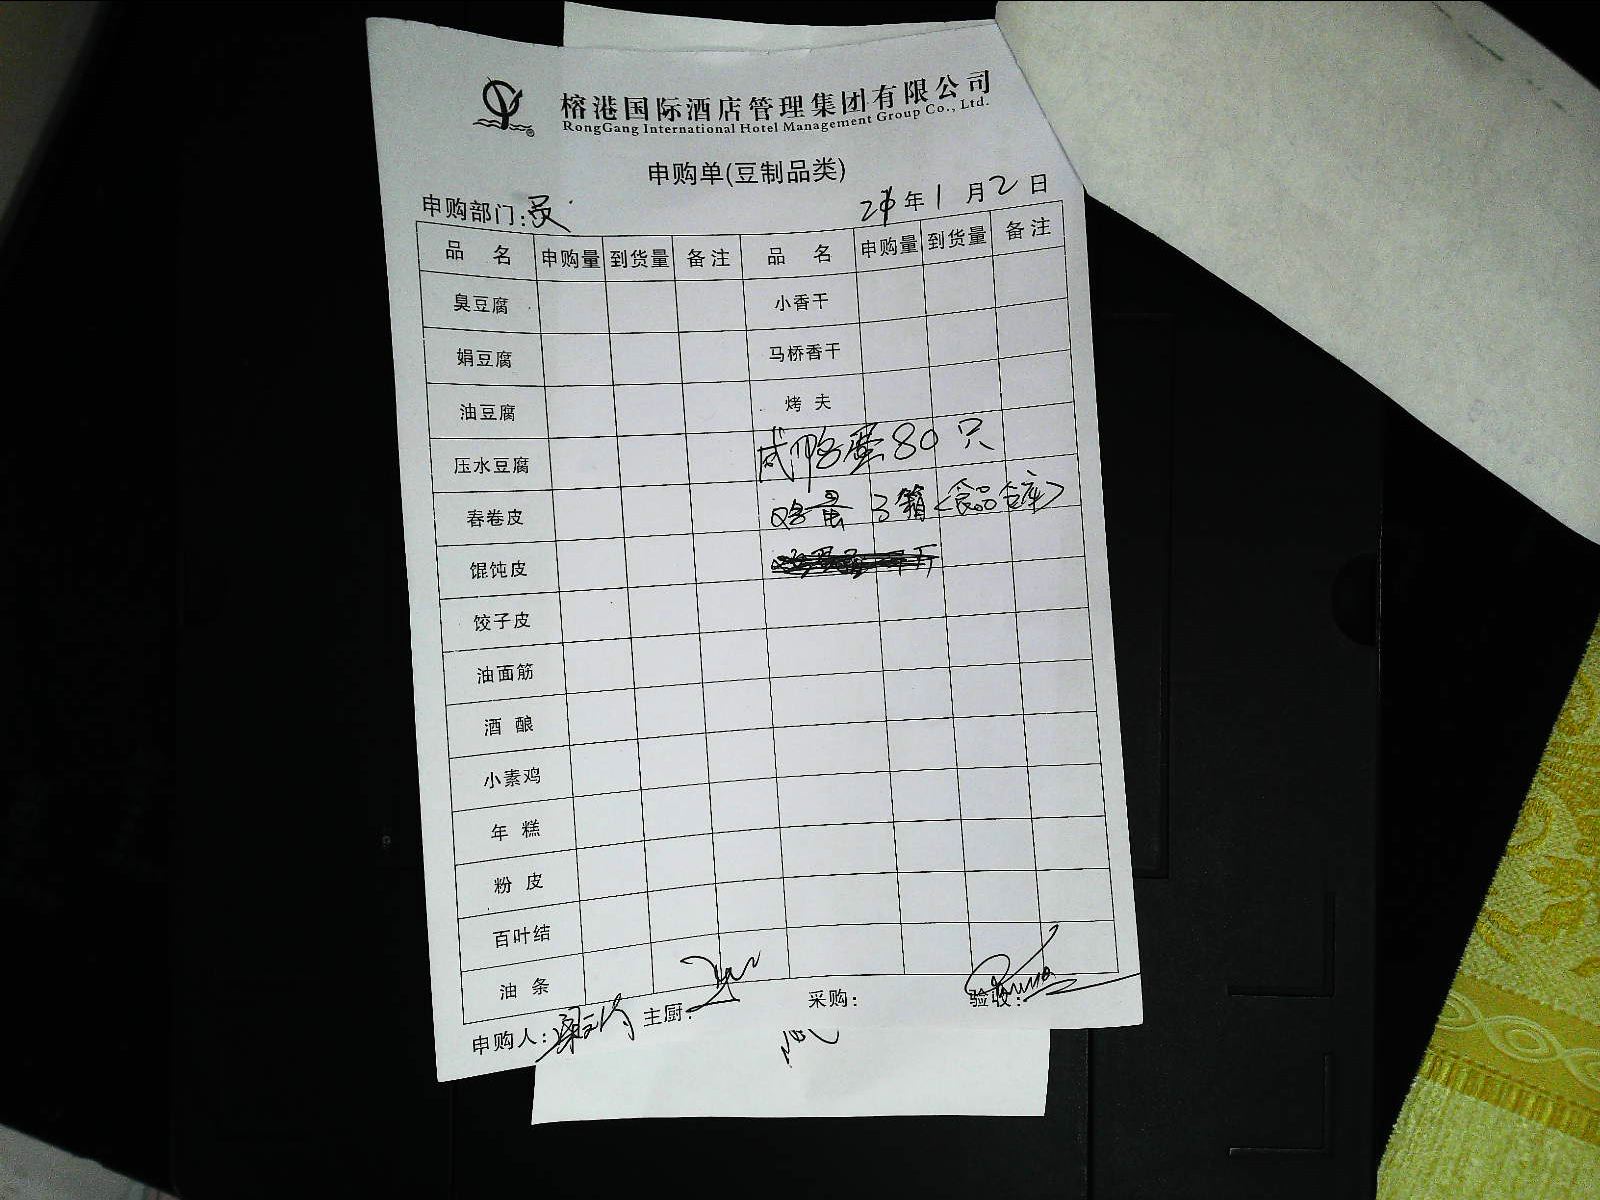 榕港国际酒店管理集团有限公司
RongGang International Hotel Management Group Co., Ltd.
申购单(豆制品类)
申购部门: 年 1 月 2 日
品 名 申购量 到货量 备注 品 名 申购量 到货量 备注
臭豆腐 小香干
娟豆腐 马桥香干
油豆腐 烤 夫
压水豆腐 咸鸭蛋 80 只
春卷皮 鸡蛋 3 箱<食品仓库>
馄饨皮
饺子皮
油面筋
酒 酿
小素鸡
年 糕
粉 皮
百叶结
油 条
申购人: 主厨: 采购: 验收: